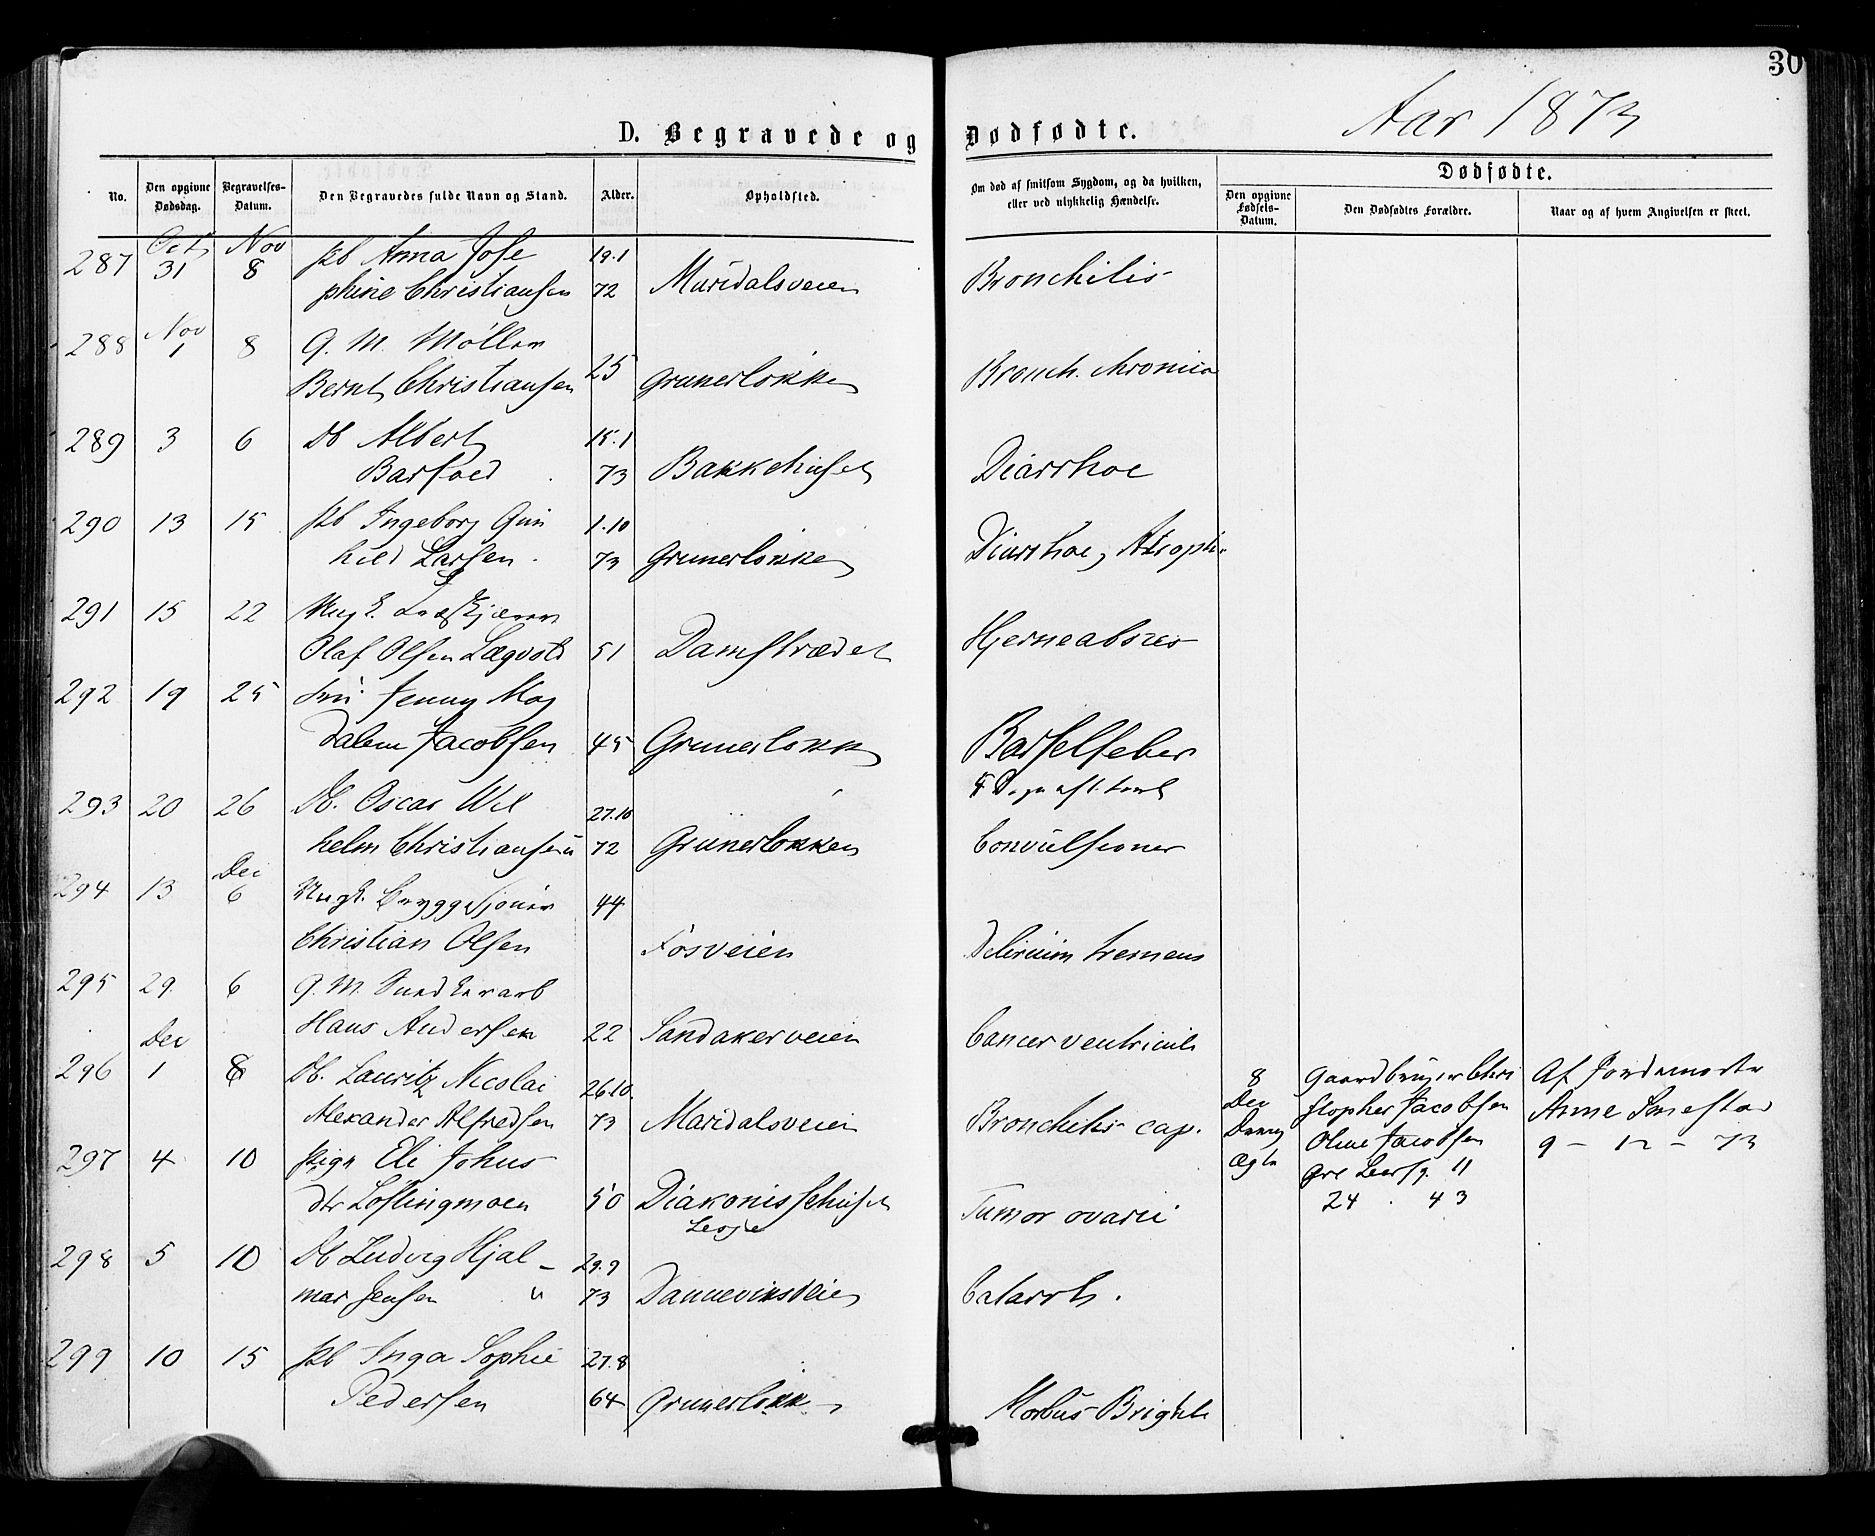 30
Aar 1873
D. Begravede og Dødfødte.
No. Den opgivne Dødsdag. Begravelses-Datum. Den Begravedes fulde Navn og Stand. Alder. Opholdsted. Om død af smitsom Sygdom, og da hvilken, eller ved ulykkelig Hændelse. Dødfødte.
Den opgivne Fødsels-Datum. Den Dødfødtes Forældre. Naar og af hvem Angivelsen er skeet.
287 Oct 31 Nov 8 Pb Anna Jose 19.1
phine Christiansen 72 Maridalsveien Bronchitis
288 Nov 1 8 G. M. Møller
Bernt Christiansen 25 Grunerløkken Bronch. chronica
289 3 6 Db Albert 15.1
Barfoed 73 Bakkehuset Diarrhoe
290 13 15 Pb Ingeborg Gun 1.10
hild Larsen. 73 Grunerløkken Diarrhoe, Atroph.
291 15 22 Ungk.
Olaf Olsen 51 Damstrædet Hjerneabsces
292 19 25 Jenny Mag
dalene Jacobsen 45 Grunerløkk Barselfeber
293 20 26 Db. Oscar Wil 27.10
helm Christiansen 72 Grünerløkken Convulsioner
294 13 Dec 6 Ungk. Bryggesjouer 44
Christian Olsen Fosveien Delirium tremens
295 29. 6 G. M.
Hans Andersen 22 Sandakerveien Cancer ventriculi
296 Dec 1 8 Db. Lauritz Nicolai 26.10.
Alexander Alfredsen 73 Maridalsveien Bronchitis cap.
8 Dec Dreng Ægte
Gaardbruger Chri
stopher Jacobsen
Oline Jacobsen
11
24 . 43
Af Jordemoder
Anne Smestad
9 - 12 - 73
297 4 10 Pige Eli Johns
dtr Løftingmoen 50 Diakonissehuset Tumor ovarii
298 5 10 Db Ludvig Hjal- 29.9
mar Jensen 73 Dannevirksveien Catarrh.
299 10 15 Pb Inga Sophie 27.8
Pedersen 64 Grunerløkk Morbus Brighti